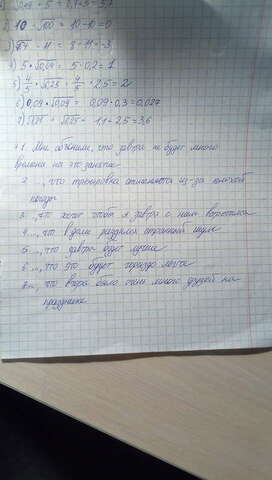 + 5 = 0,7 + 5 = 5,7
2) 10 - √100 = 10 - 10 = 0
3) √64 - 11 = 8 - 11 = -3
4) 5 · √0,04 = 5 · 0,2 = 1
5) 4/5 · √6,25 = 4/5 · 2,5 = 2
6) 0,09 · √0,09 = 0,09 · 0,3 = 0,027
7) √1,21 + √6,25 = 1,1 + 2,5 = 3,6
1. Мы объяснили, что завтра не будет много
времени на это занятие
2 ..., что тренировка отменяется из-за плохой
погоды
3 ..., что хотят чтоб я завтра с ним встретился
4 ..., что в доме раздался странный шум
5 ..., что завтра будет лучше
6 ..., что это будет гораздо легче
8 ..., что вчера было очень много друзей на
празднике